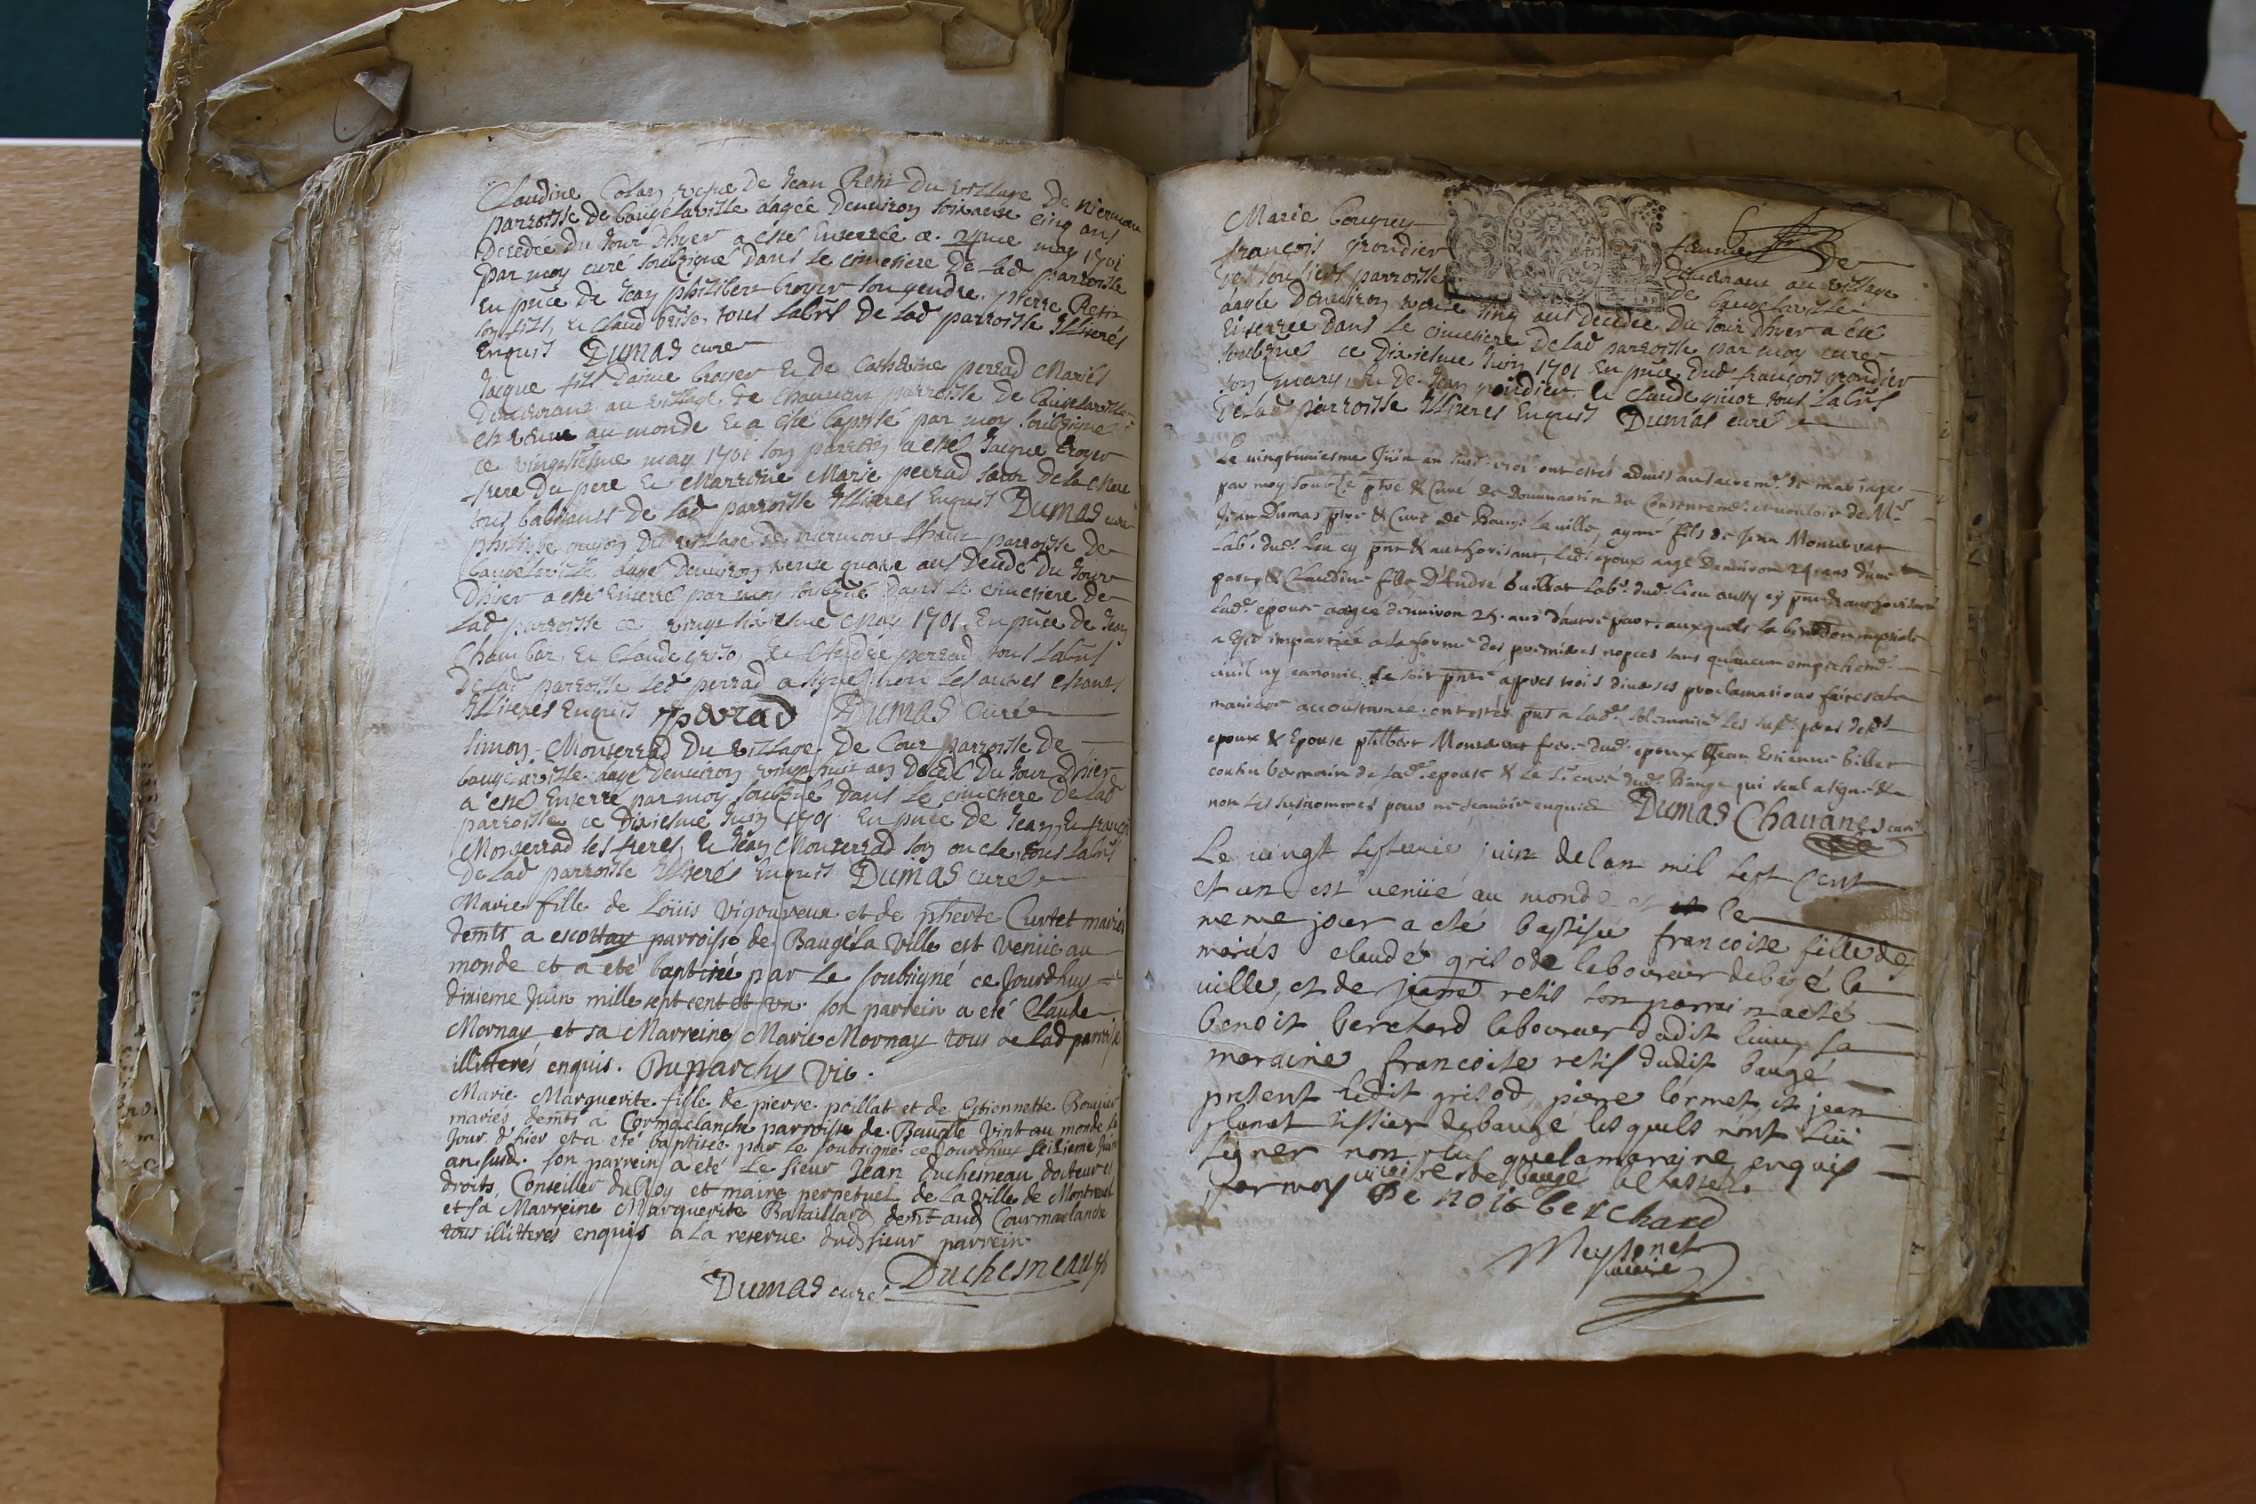 Claudine Colas vefve de Jean Retis du village de
parroisse de baugelaville aagée denviron soixante cinq ans
Decedée du Jour dhyer a esté Enterrée ce 24me may 1701
par moy curé soubzigné Dans Le cimetiere de Lad parroisse
En pnce de Jean philibert broyer son gendre. pierre Retis
son fils, et Claude tous Labrs de Lad parroisse Illiterés
Enquis Dumas curé
Jacque fils Daimé broyer et de Catherine perrad Mariés
Demeurans au village de Chauvan parroisse de baugelaville
est venu au monde et a esté baptisé par moy soubzigné
ce vingtiesme may 1701 son parrein a esté Jacque broyer
frere du pere et Marreine Marie perrad sœur de la Mere
tous habitants de Lad parroisse Illiteres Enquis Dumas curé
philibe guyon du village de parroisse de
baugelaville aagé denviron trente quatre ans Decedé du Jour
Dhier a esté Enterré par moy soubzigné Dans Le cimetiere de
Lad parroisse ce vingt sixiesme May 1701 En pnce de Jean
Chambar, et Claude griso, et André perrad tous Labrs
de Lad parroisse led perrad a signé non Les autres estants
Illiteres Enquis perrad Dumas Curé
Simon Monterrad du village de Cour parroisse de
baugelaville aagé denviron vingt huit ans Decedé du Jour Dhier
a esté Enterré par moy soubzné Dans Le cimetiere de Lad
parroisse ce Dixiesme Juin 1701 En pnce de Jean, et françois
Monterrad ses freres, et Jean Monterrad son oncle tous Labrs
de Lad parroisse Illiterés Enquis Dumas curé
Marie fille de Loüis Vigoureux et de pherte Curtet mariés
demts a escottay parroisse de Baugé la Ville est venüe au
monde et a eté baptisée par Le soubsigné ce jourdhuy
dixieme Juin mille sept cent et un. son parrein a eté Claude
Mornay et sa Marreine Marie Mornay tous de Lad parroisse
illitterés enquis. Duparchy Vic.
Marie Marguerite fille de pierre poillat et de Estiennette Bouvier
mariés demts à Cormaclanche parroisse de Baugé vint au monde le
jour d'hier et a eté baptisée par Le soubsigné ce jourdhuy seizieme juin
an susd. son parrein a eté Le sieur Jean Duchesneau docteur es
droits, Conseiller du Roy et maire perpetuel de la Ville de Montreal
et sa Marreine Marguerite Bataillard demt aud Courmaclande
tous illitteres enquis a La reserve dud sieur parrein
Dumas curé Duchesneau
Marie bougrey femme de
françois grondier Demeurant au village
parroisse de baugelaville
aagée denviron trente cinq ans Decedée Du Jour Dhyer a esté
Enterrée Dans Le cimetiere de Lad parroisse par moy curé
soubzigné ce Dixiesme Juin 1701 En pnce dud françois grondier
son mary, et de Jean grondier, et Claude tous Labrs
de Lad parroisse Illiteres Enquis Dumas curé
Le vingtuniesme Juin an susd 1701 ont estés admis au sacremt de mariage
par moy soubze ptre & Curé de Dommartin du Consentemt et vouloir de Mre
Jean Dumas ptre & Curé de Baugé la ville, aymé fils de Jean Monterrat
Labr dud Lieu cy pnt & authorisant, Led epoux aagé denviron 24 ans d'une
part, & Claudine fille D'André buillat Labr dud Lieu aussy cy pnt & authorisant
Lad epouse aagée denviron 25 ans dautre part, auxquels la bn[edicti]on nuptiale
a esté impartiée a la forme des premieres nopces sans qu'aucun empechemt
civil ny canonic se soit pnté appres trois diverses proclamations faites a la
maniere accoustumée. ont estés pnts a lad solemnité les susd peres desd
epoux & Epouse philbert Monterrat frere dud epoux & Jean Estienne billet
cousin Germain de lad epouse & le Sr curé dud Baugé qui seul a signé &
non les susnommés pour ne scavoir enquis Dumas Chavanes curé
Le vingt septieme juin de lan mil sept cent
et un est venüe au monde et le
meme jour a eté baptisée francoise fille des
mariés claude grisod laboureur debagé la
ville, et de jeanne retis son parrain a eté
benoit berchard laboureur dudit lieux sa
maraine francoise retis dudit baugé
present ledit grisod, piere lormet, et jean
plunet tissier debauge lesquels n'ont sceu
signer non plus que la maraine enquis
par moy vicaire de baugé
Benoit berchard
Meysonet
vicaire